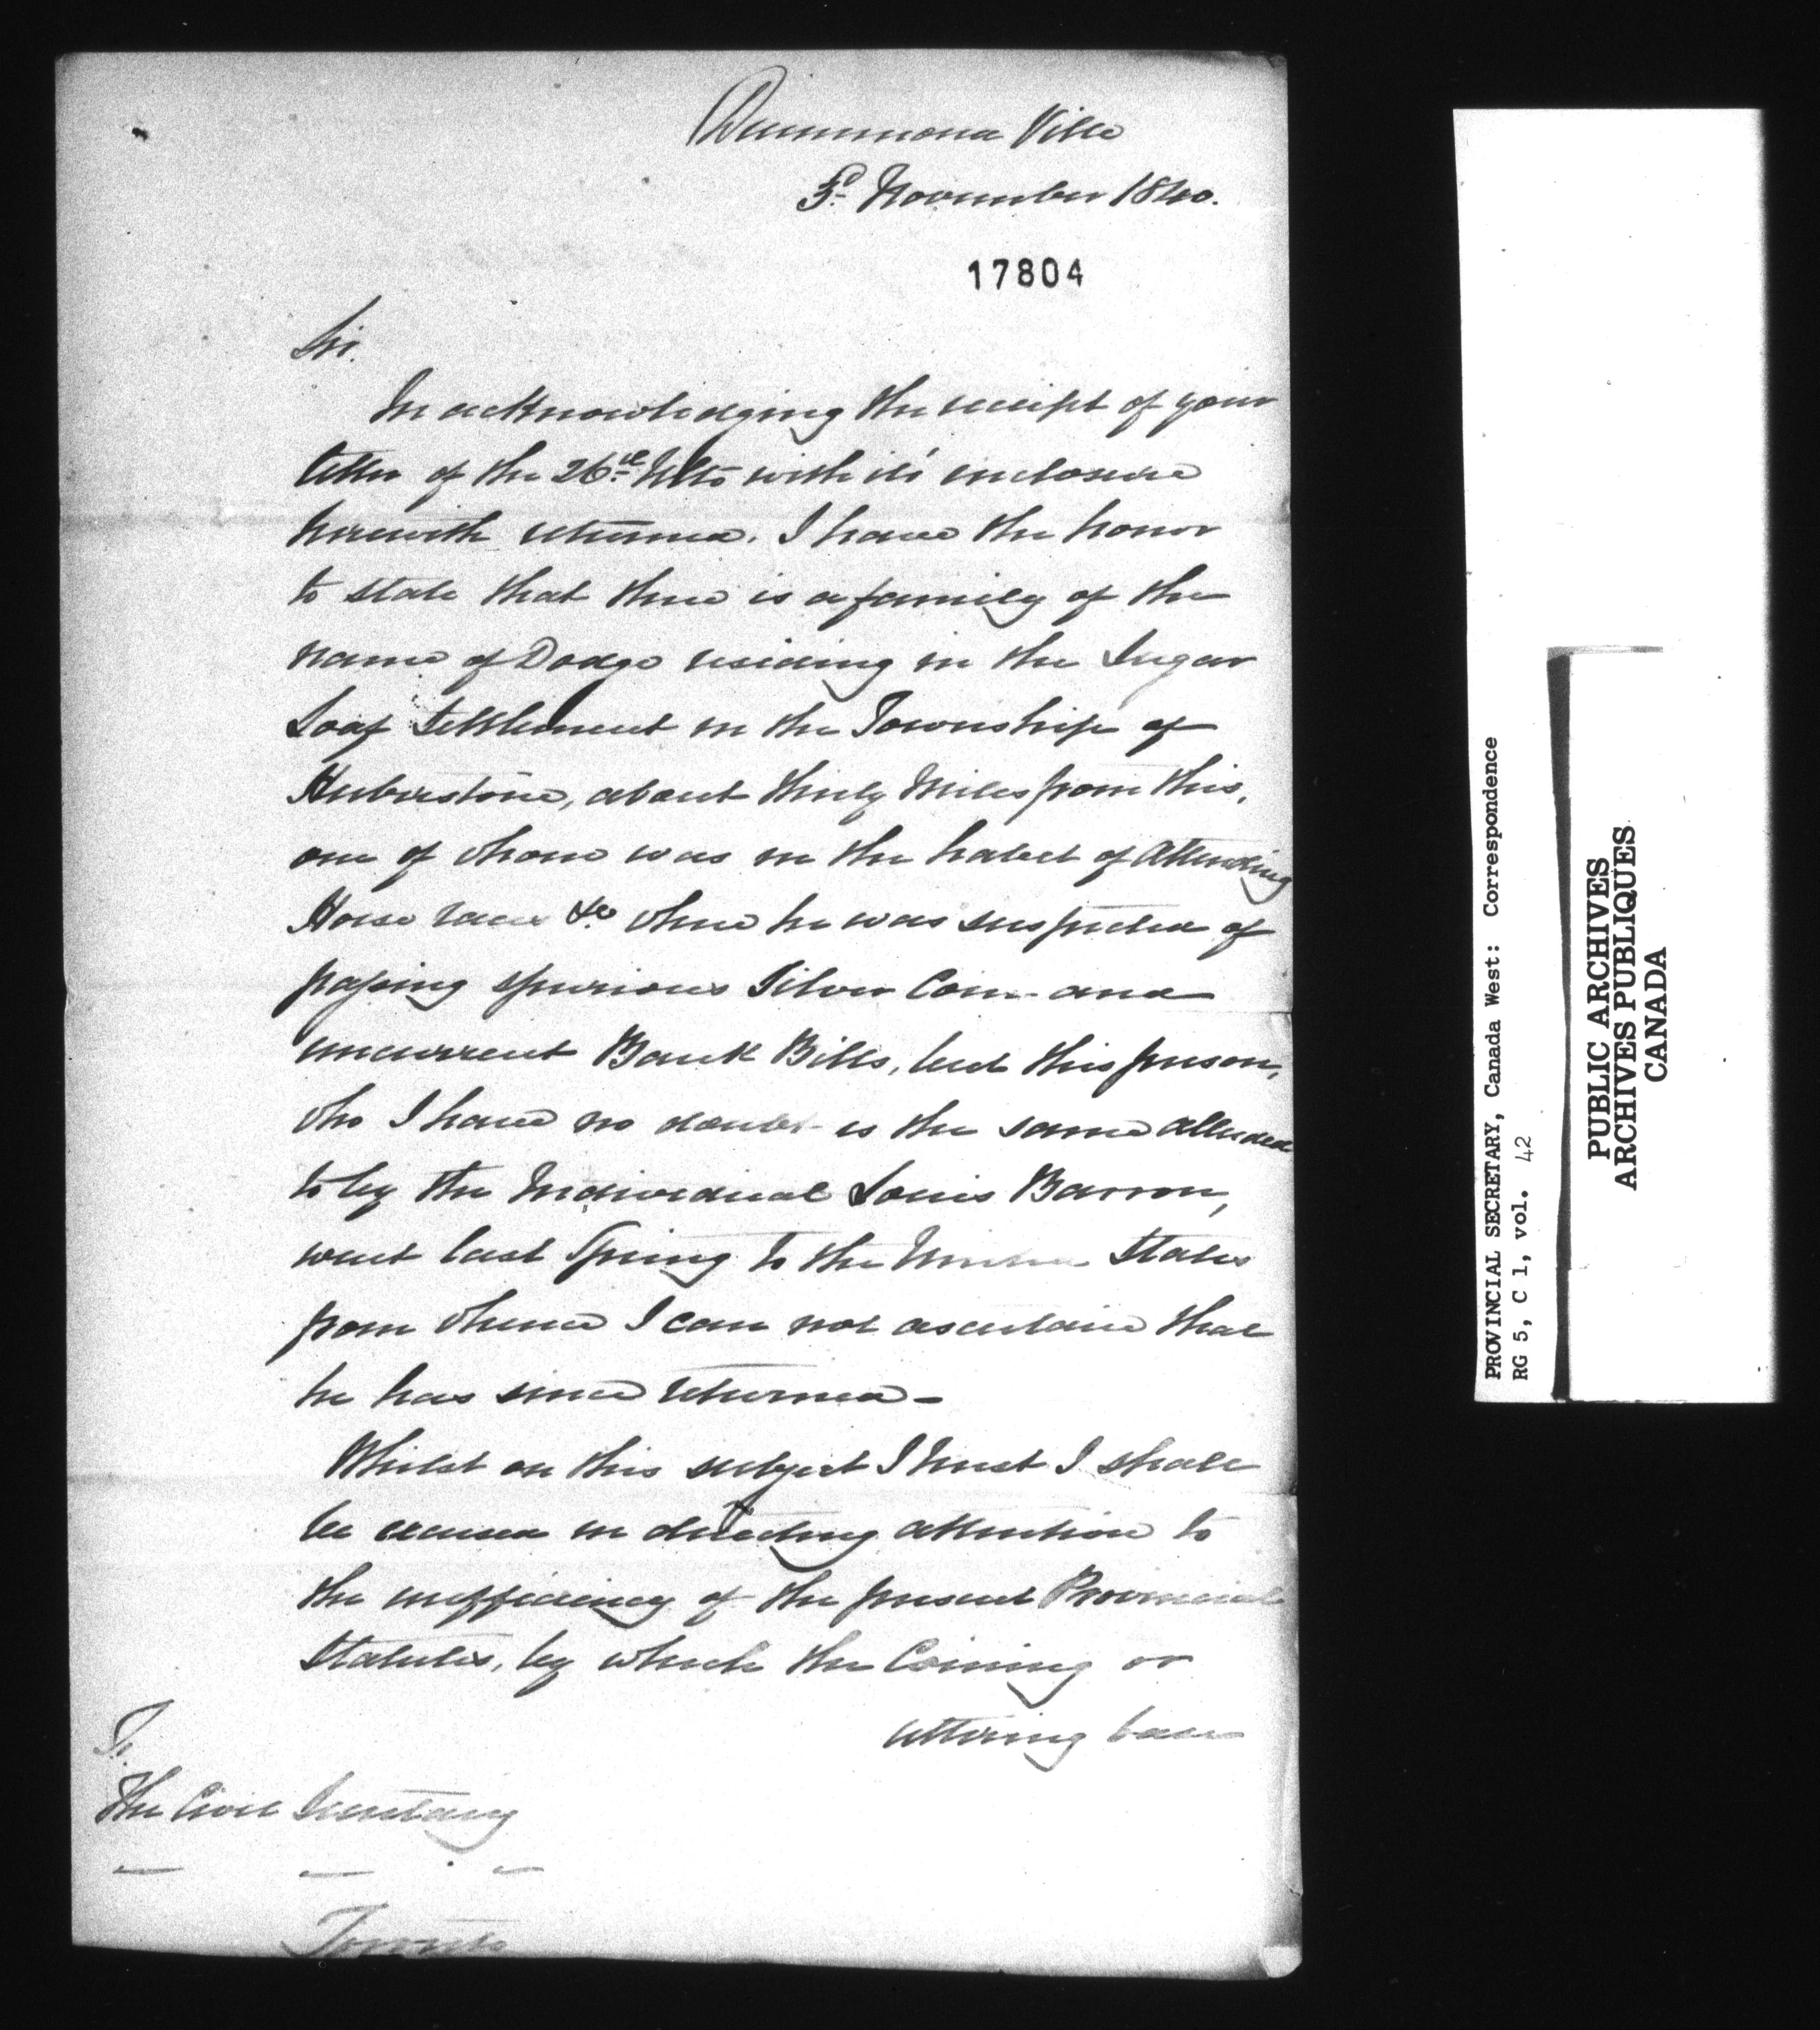 Drummond Ville
3d November 1840.
17804
Sir.
In acknowledging the receipt of your
letter of the 26th Ulto with its' enclosure
herewith returned. I have the honor
to state that there is a family of the
name of Dodge residing in the Sugar
Loaf Settlement in the Township of
Humberstone, about thirty Miles from this,
one of whom was in the habit of Attending
Horse races &c where he was suspected of
passing spurious Silver Coin and
uncurrent Bank Bills, but this person,
who I have no doubt is the same alluded
to by the Individual Louis Barron,
went last Spring to the United States
from whence I can not ascertain that
he has since returned—
Whilst on this subject I trust I shall
be excused in directing attention to
the inefficiency of the present Provincial
Statutes, by which the Coining or
uttering base
To
The Civil Secretary
Toronto
PROVINCIAL SECRETARY, Canada West: Correspondence
RG 5, C 1, vol. 42
PUBLIC ARCHIVES
ARCHIVES PUBLIQUES
CANADA